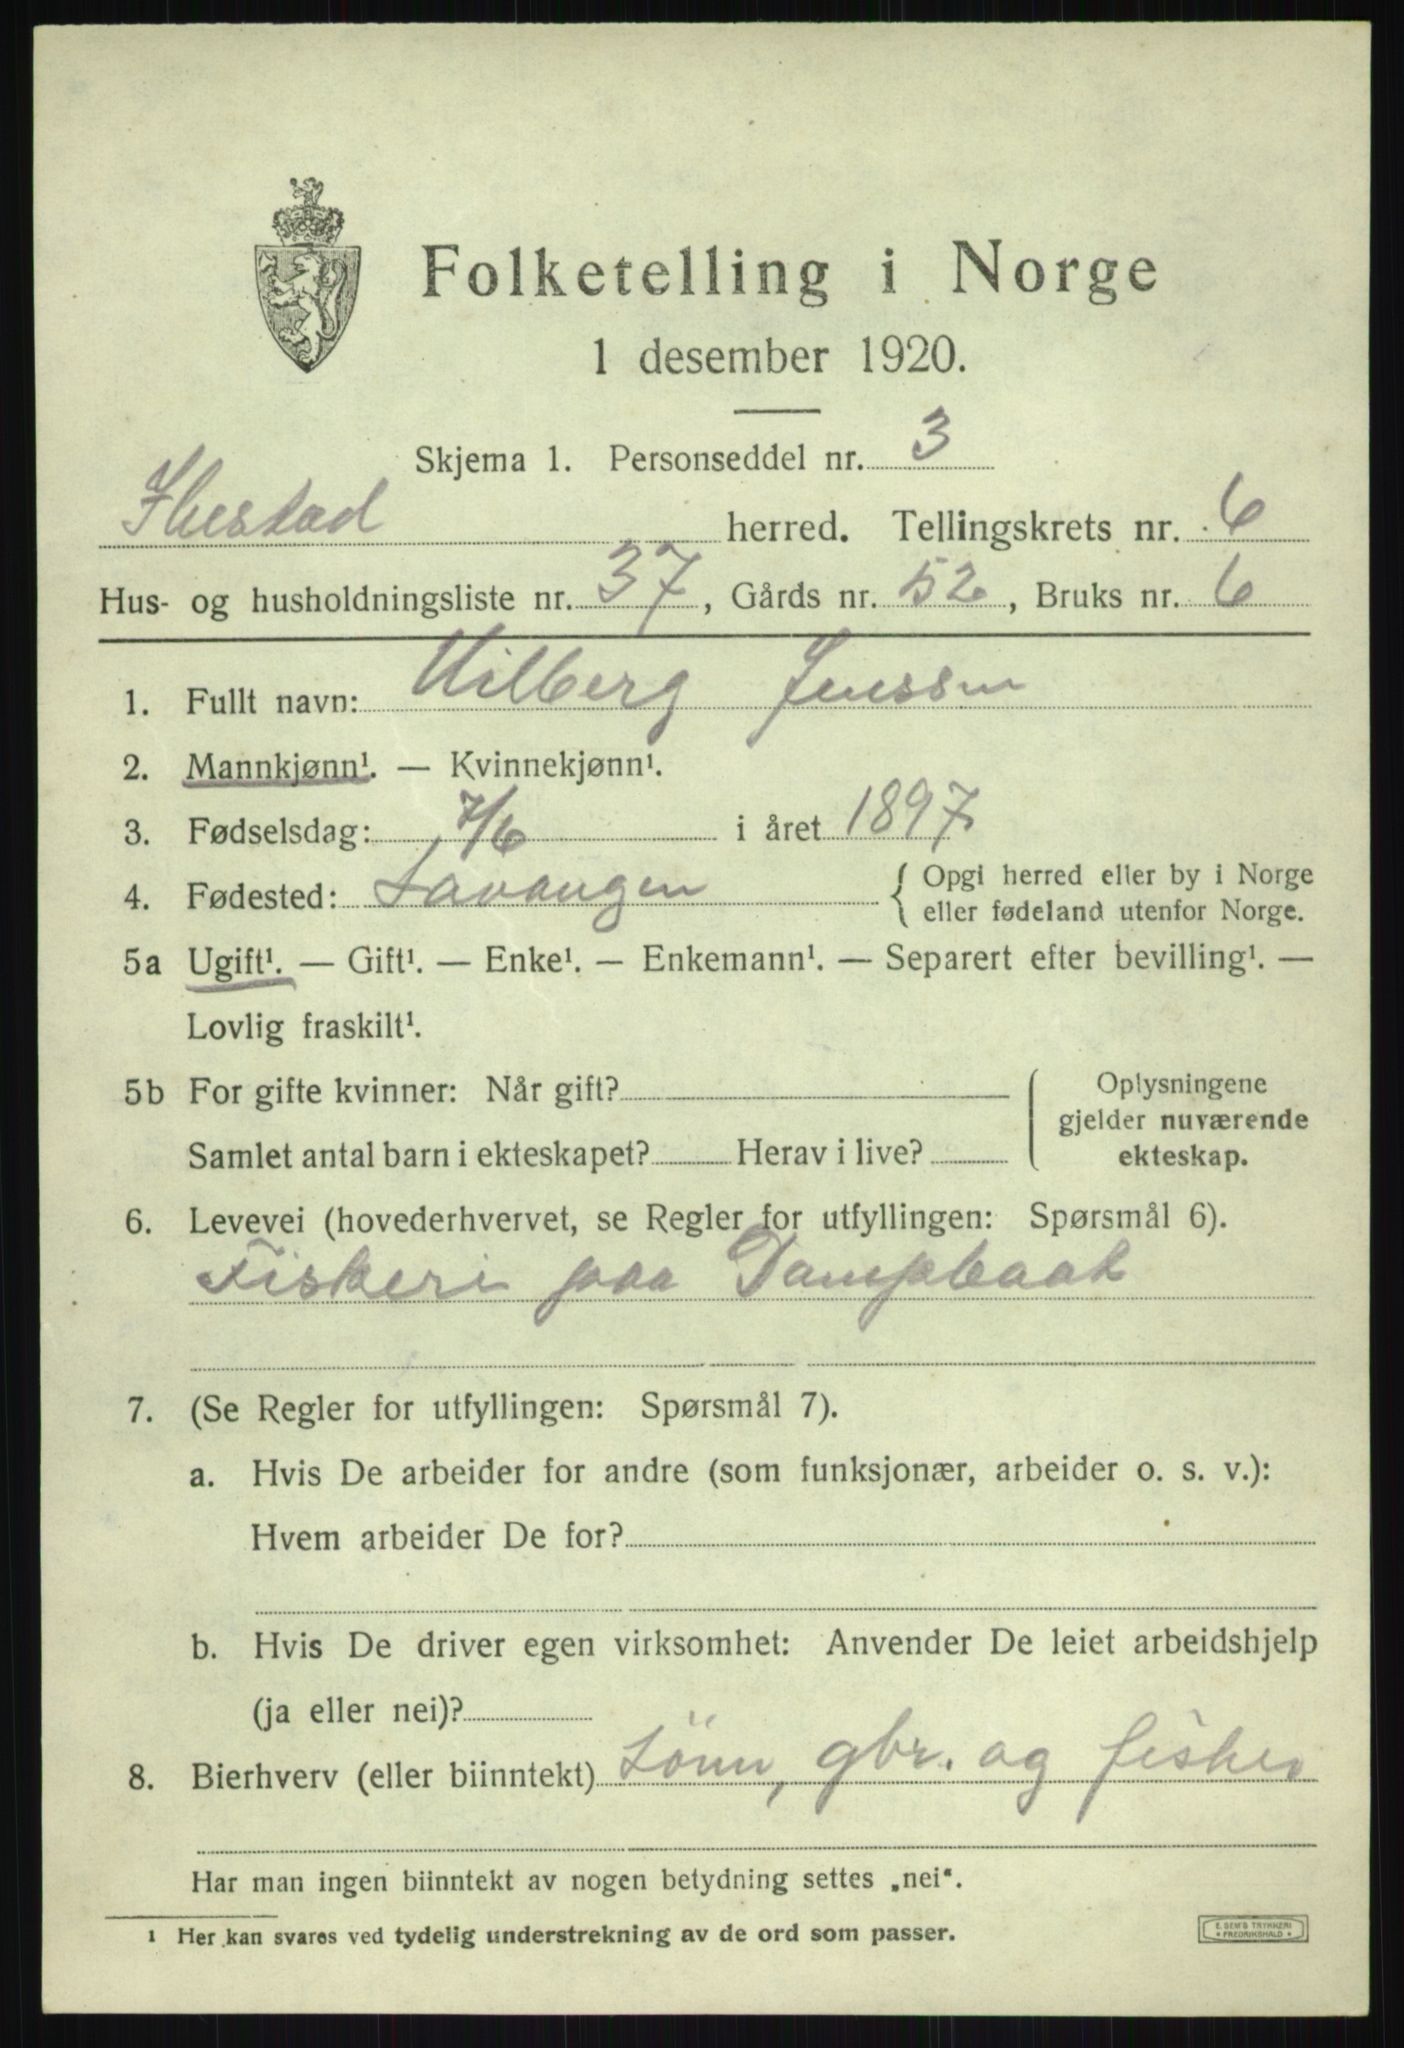 Folketelling i Norge
1 desember 1920.
Skjema 1. Personseddel nr. 3
Ibestad herred. Tellingskrets nr. 6
Hus- og husholdningsliste nr. 37, Gårds nr. 52, Bruks nr. 6
1. Fullt navn: Hilberg Jenssen
2. Mannkjønn¹. — Kvinnekjønn¹.
3. Fødselsdag: 7/6 i året 1897
4. Fødested: Lavangen { Opgi herred eller by i Norge
eller fødeland utenfor Norge.
5a Ugift¹. — Gift¹. — Enke¹. — Enkemann¹. — Separert efter bevilling¹. —
Lovlig fraskilt¹.
5b For gifte kvinner: Når gift?
Samlet antal barn i ekteskapet? Herav i live?
Oplysningene
gjelder nuværende
ekteskap.
6. Levevei (hovederhvervet, se Regler for utfyllingen: Spørsmål 6).
Fiskeri paa Dampbaat
7. (Se Regler for utfyllingen: Spørsmål 7).
a. Hvis De arbeider for andre (som funksjonær, arbeider o. s. v.):
Hvem arbeider De for?
b. Hvis De driver egen virksomhet: Anvender De leiet arbeidshjelp
(ja eller nei)?
8. Bierhverv (eller biinntekt) Sönn, gbr. og fisker
Har man ingen biinntekt av nogen betydning settes „nei".
¹ Her kan svares ved tydelig understrekning av de ord som passer.
E. SEM'S TRYKKERI
* FREDRIKSHALD *